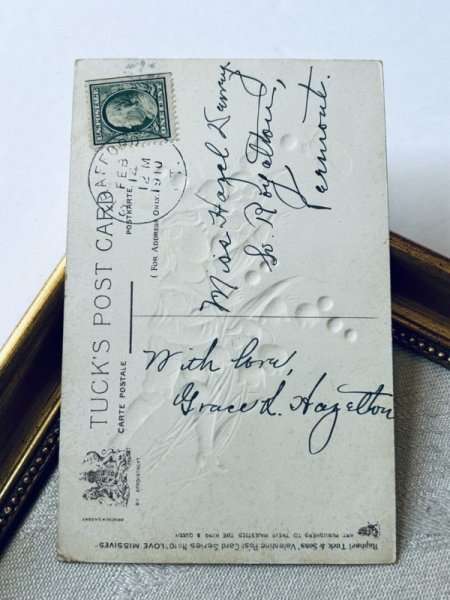 TUCK'S POST CARD
CARTE POSTALE
POSTKARTE.
(FOR ADDRESS ONLY.)
FEB
14
12 M
1910
Miss Hazel
So. Royalton,
Vermont.
With love,
Grace L. Hazelton
BY APPOINTMENT
PRINTED IN SAXONY
Raphael Tuck & Sons' Valentine Post Card Series No 10 "LOVE MISSIVES"
ART PUBLISHERS TO THEIR MAJESTIES THE KING & QUEEN